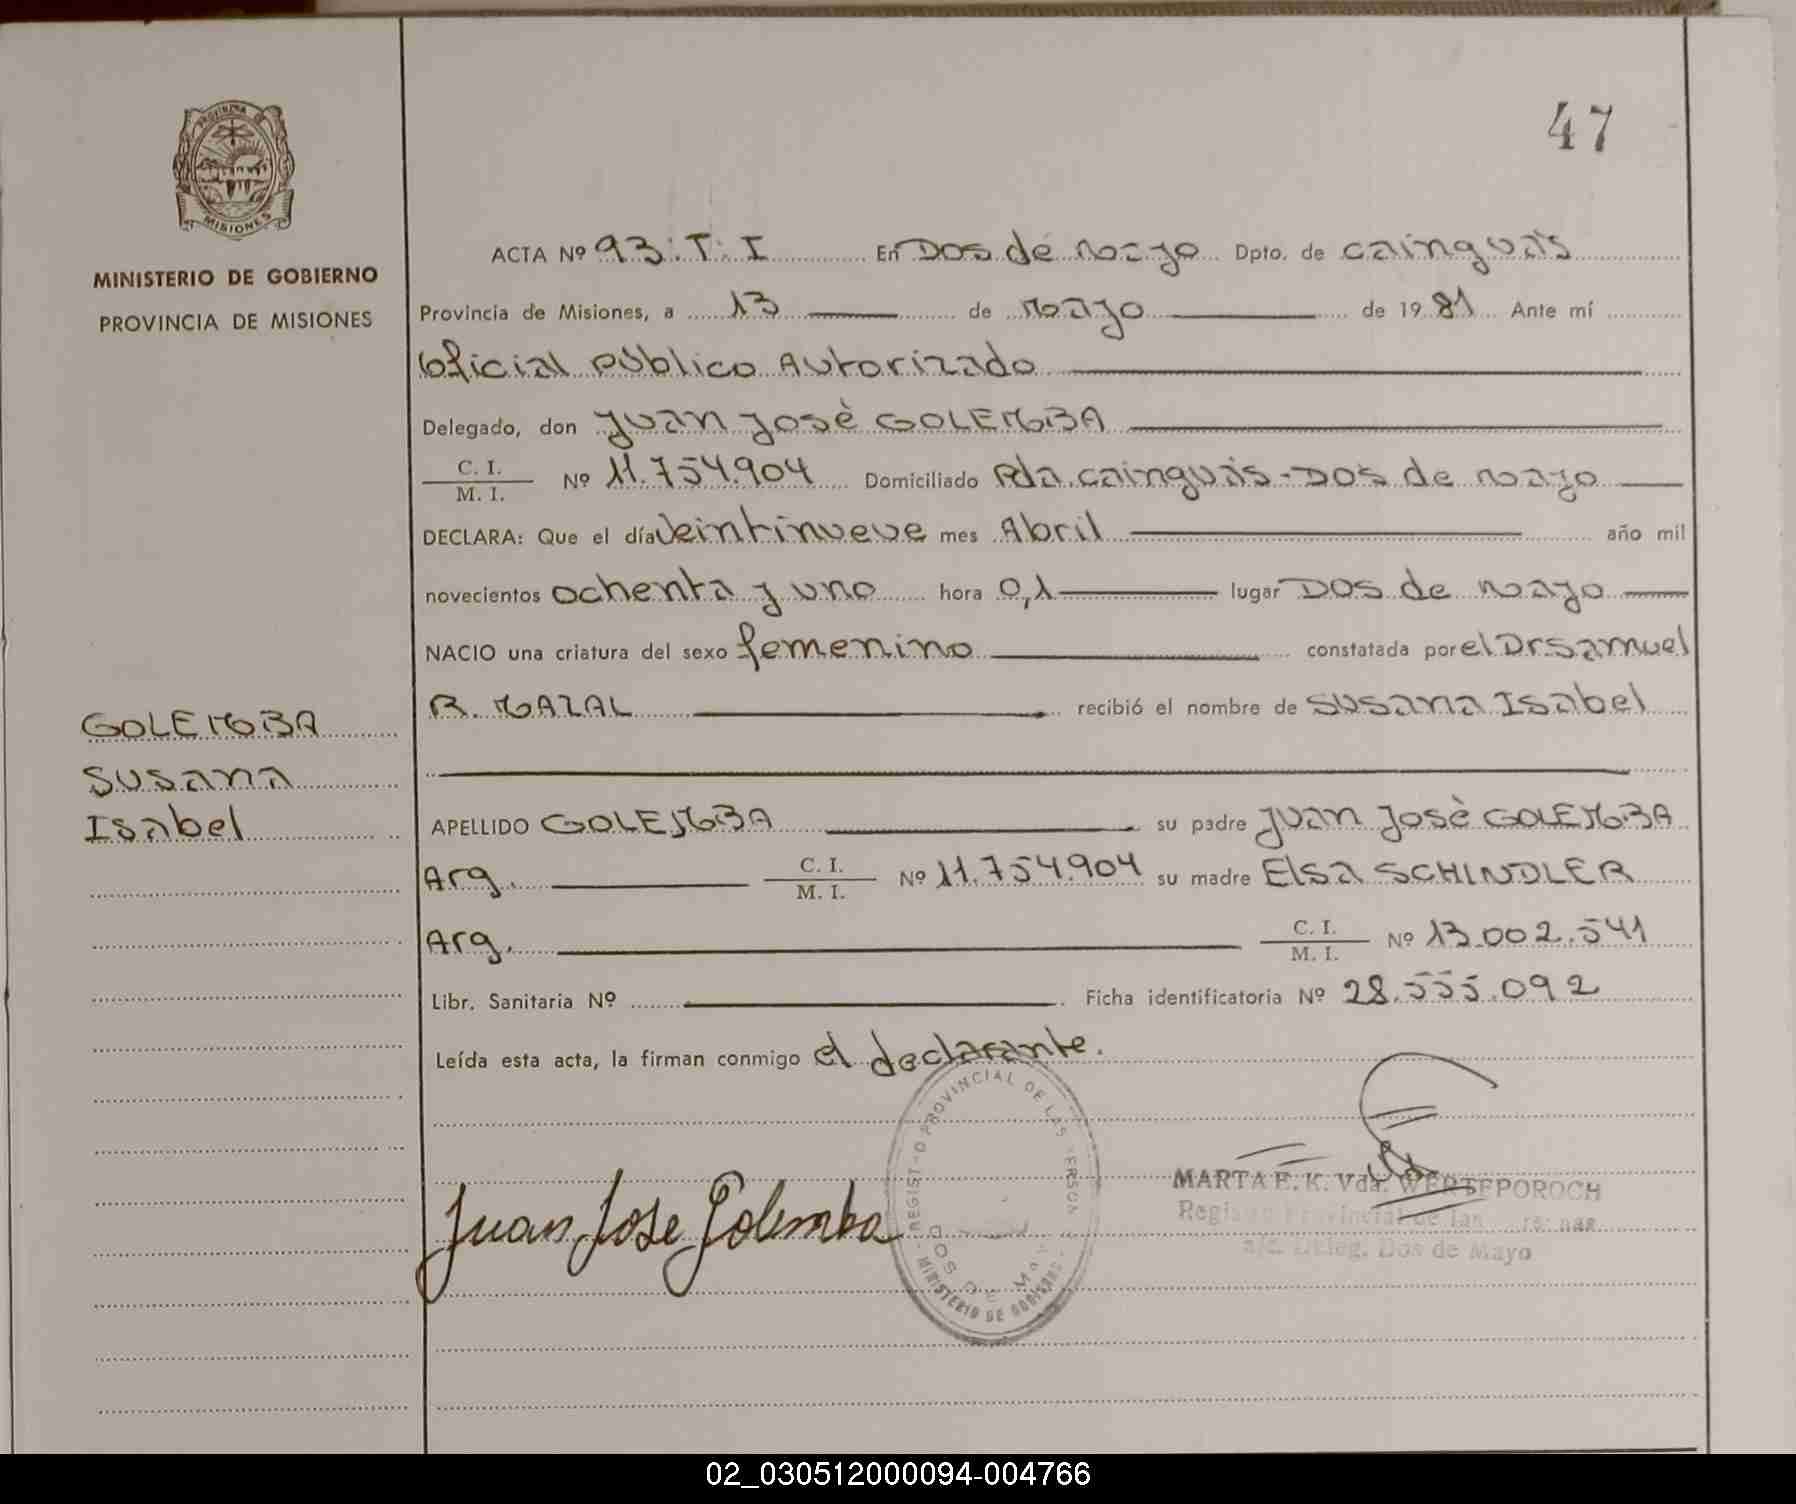 47
PROVINCIA DE
MISIONES
MINISTERIO DE GOBIERNO
PROVINCIA DE MISIONES
ACTA Nº 93.T.I En Dos de mayo Dpto. de cainguás
Provincia de Misiones, a 13 de mayo de 1981 Ante mí
Oficial Público Autorizado
Delegado, don Juan Josè GOLEMBA
C. I.
M. I. Nº 11.754.904 Domiciliado Pda. cainguàs - Dos de mayo
DECLARA: Que el día Veintinueve mes Abril año mil
novecientos ochenta y uno hora 0,1 lugar Dos de mayo
NACIO una criatura del sexo femenino constatada por el Dr Samuel
R. MAZAL recibió el nombre de Susana Isabel
GOLEMBA
Susana
Isabel
APELLIDO GOLEMBA su padre Juan Josè GOLEMBA
Arg. C. I.
M. I. Nº 11.754.904 su madre Elsa SCHINDLER
Arg. C. I.
M. I. Nº 13.002.541
Libr. Sanitaria Nº Ficha identificatoria Nº 28.555.092
Leída esta acta, la firman conmigo el declarante.
REGISTRO PROVINCIAL DE LAS PERSONAS
DOS DE MAYO
MINISTERIO DE GOBIERNO
Juan Jose Golemba
MARTA E. K. Vda. WERTEPOROCH
Registro Provincial de las Personas
a/c. Deleg. Dos de Mayo
02_030512000094-004766